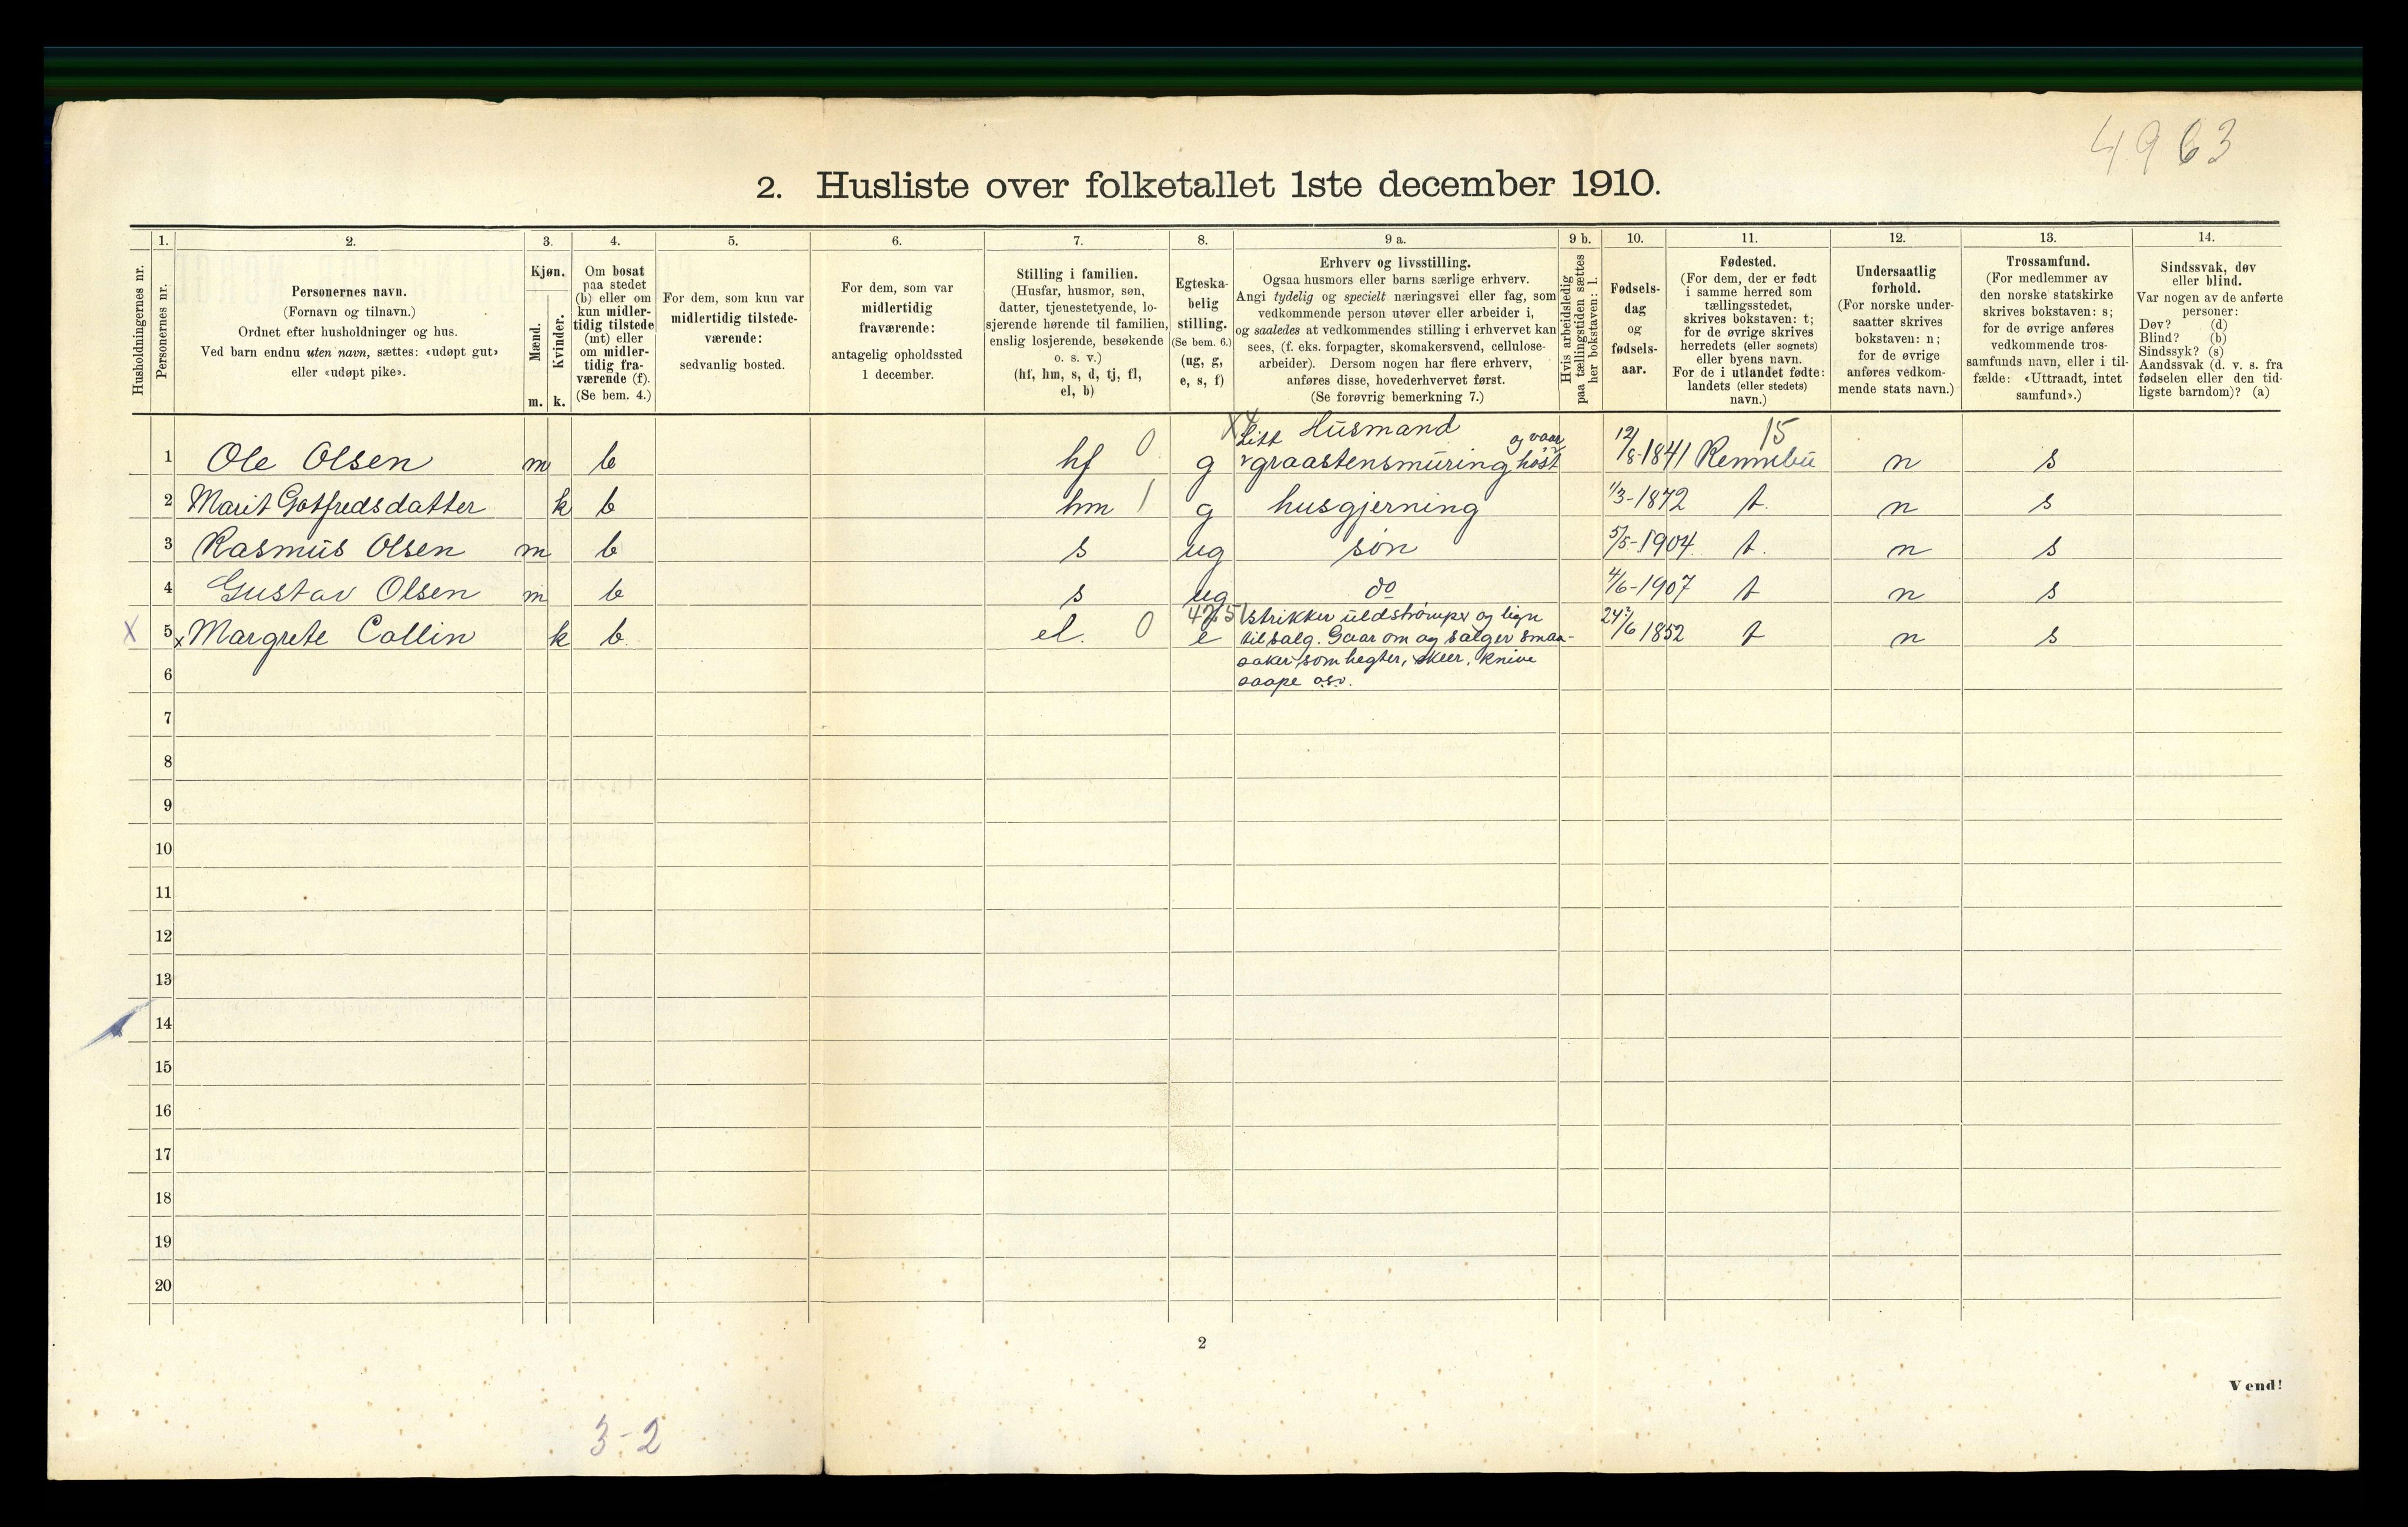 4963
2. Husliste over folketallet 1ste december 1910.
Husholdningernes nr.
1.
Personernes nr.
2.
Personernes navn.
(Fornavn og tilnavn.)
Ordnet efter husholdninger og hus.
Ved barn endnu uten navn, sættes: «udøpt gut»
eller «udøpt pike».
3.
Kjøn.
Mænd.
m.
Kvinder.
k.
4.
Om bosat
paa stedet
(b) eller om
kun midler-
tidig tilstede
(mt) eller
om midler-
tidig fra-
værende (f).
(Se bem. 4.)
5.
For dem, som kun var
midlertidig tilstede-
værende:
sedvanlig bosted.
6.
For dem, som var
midlertidig
fraværende:
antagelig opholdssted
1 december.
7.
Stilling i familien.
(Husfar, husmor, søn,
datter, tjenestetyende, lo-
sjerende hørende til familien,
enslig losjerende, besøkende
o. s. v.)
(hf, hm, s, d, tj, fl,
el, b)
8.
Egteska-
belig
stilling.
(Se bem. 6.)
(ug, g,
e, s, f)
9 a.
Erhverv og livsstilling.
Ogsaa husmors eller barns særlige erhverv.
Angi tydelig og specielt næringsvei eller fag, som
vedkommende person utøver eller arbeider i,
og saaledes at vedkommendes stilling i erhvervet kan
sees, (f. eks. forpagter, skomakersvend, cellulose-
arbeider). Dersom nogen har flere erhverv,
anføres disse, hovederhvervet først.
(Se forøvrig bemerkning 7.)
9 b.
Hvis arbeidsledig
paa tællingstiden sættes
her bokstaven: l.
10.
Fødsels-
dag
og
fødsels-
aar.
11.
Fødested.
(For dem, der er født
i samme herred som
tællingsstedet,
skrives bokstaven: t;
for de øvrige skrives
herredets (eller sognets)
eller byens navn.
For de i utlandet fødte:
landets (eller stedets)
navn.)
12.
Undersaatlig
forhold.
(For norske under-
saatter skrives
bokstaven: n;
for de øvrige
anføres vedkom-
mende stats navn.)
13.
Trossamfund.
(For medlemmer av
den norske statskirke
skrives bokstaven: s;
for de øvrige anføres
vedkommende tros-
samfunds navn, eller i til-
fælde: «Uttraadt, intet
samfund».)
14.
Sindssvak, døv
eller blind.
Var nogen av de anførte
personer:
Døv? (d)
Blind? (b)
Sindssyk? (s)
Aandssvak (d. v. s. fra
fødselen eller den tid-
ligste barndom)? (a)
Husmand 15
1 Ole Olsen m b hf 0 g Litt graastensmuring og vaar høst 12/8-1841 Rennebu n s
2 Marit Gotfredsdatter k b hm 1 g husgjerning 1/3-1872 t. n s
3 Rasmus Olsen m b s ug søn 5/5-1904 t. n s
4 Gustav Olsen m b s ug do 4/6-1907 t n s
X 5 x Margrete Collin k b. el. 0 e strikker uldstrømper og lign 24/6 1852 t n s
til salg. Gaar om og sælger smaa-
saker som hegter, skeer, knive
6 saape osv.
7
8
9
10
11
12
13
14
15
16
17
18
19
20
2
Vend!
3-2